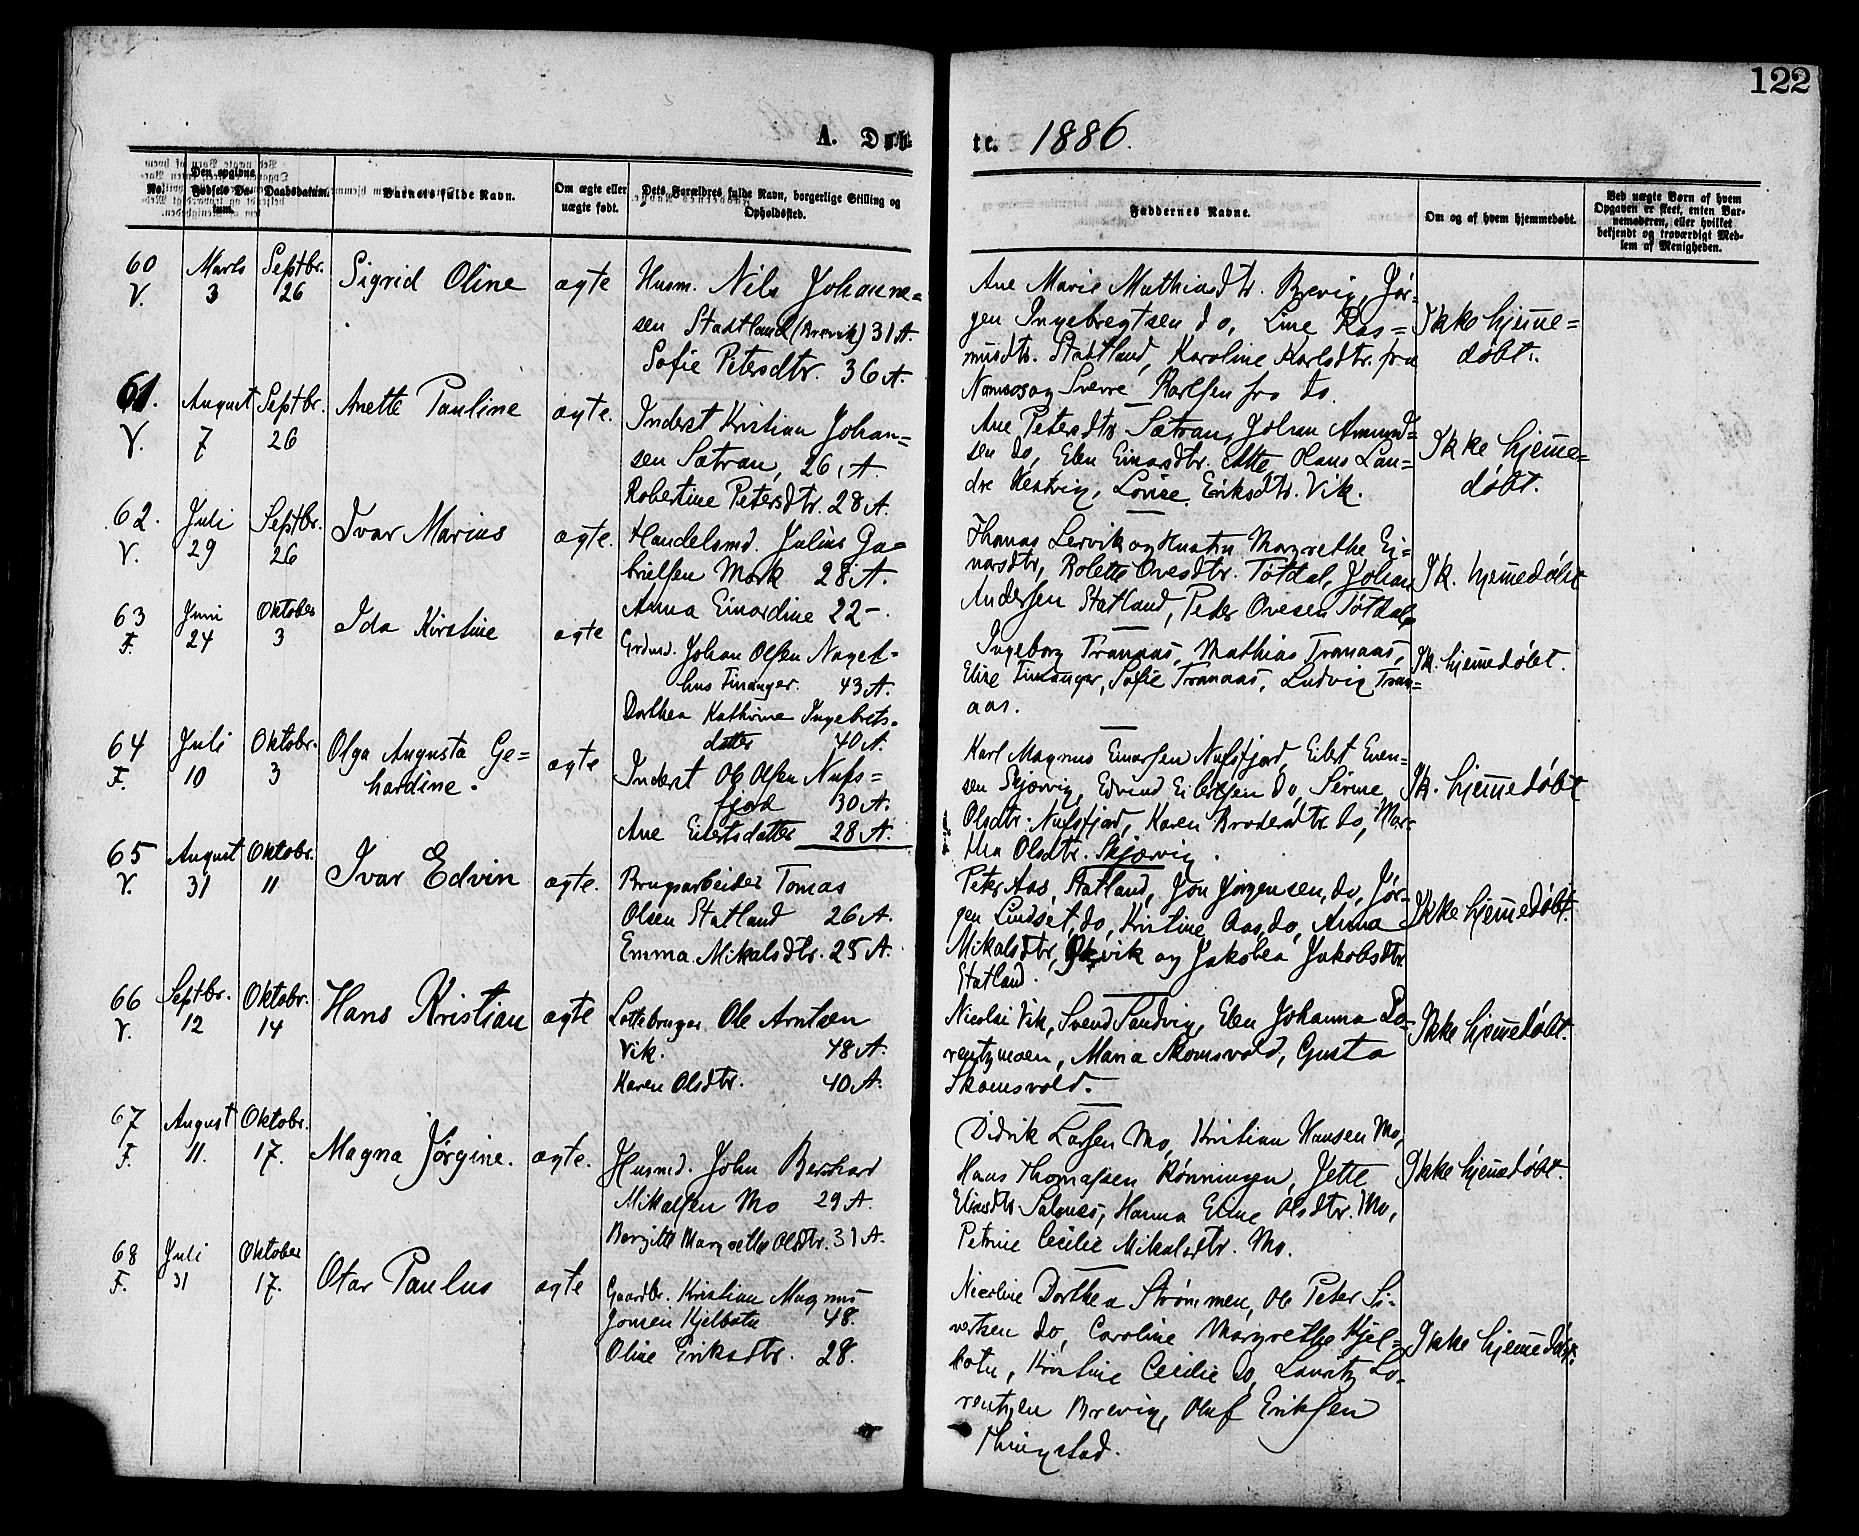 122
A. Døb-
te. 1886.
No.
Den opgivne Fødsels Datum.
Daabsdatum.
Barnets fulde Navn.
Om ægte eller uægte født.
Dets Forældres fulde Navn, borgerlige Stilling og Opholdssted.
Faddernes Navne.
Om og af hvem hjemmedøbt.
Ved uægte Børn af hvem Opgaven er skeet, enten Barnemoderen, eller hvilket bekjendt og troværdigt Medlem af Menigheden.
60 V.
Marts 3
Septbr. 26
Sigrid Oline
ægte
Husm. Nils Johanne=
sen Statland (Brevik) 31 A.
Sofie Petersdtr. 36 A.
Ane Marie Mathiasdtr. Brevig, Jør-
gen Ingebregtsen do, Line Ras=
musdtr. Statland, Karoline Karlsdtr. fra
Namsos og Sverre Karlsen fra do.
Ikke hjemme=
døbt.
61. V.
August 7
Septbr. 26
Anette Pauline
ægte.
Inderst Kristian Johan=
sen Sætran, 26 A.
Robertine Petersdtr. 28 A.
Ane Petersdtr Sætran, Johan Amund=
sen do, Elen Einarsdtr. Utte, Olaus Lan=
dre , Lovise Eriksdtr. Vik.
Ikke hjemme=
døbt.
62. V.
Juli 29
Septbr. 26
Ivar Marius
ægte.
Handelsmd. Julius Ga=
brielsen Mork 28 A.
Anna Einardine 22 -
Thomas Lervik og Hustru Margrethe Ei=
narsdtr, Rolette Ovesdtr. Tøtdal, Johan
Andersen Statland, Peder Ovesen Tøtdal
Ik. hjemmedøbt
63 F.
Juni 24
Oktober 3
Ida Kirstine
ægte
Grdmd. Johan Olsen
hus Finanger. 43 A.
Dorthea Kathrine Ingebrets-
datter 40 A.
Ingeborg Tranaas, Mathias Tranaas,
Eline Finanger, Sofie Tranaas, Ludvig Tran=
aas.
Ik. hjemmedøbt.
64 F.
Juli 10
Oktobr. 3
Olga Augusta Ge=
hardine.
ægte
Inderst Ole Olsen Nufs=
fjord 30 A.
Ane Eilertsdatter 28 A.
Karl Magnus Einarsen Nufsfjord, Eilert Even-
sen Skjærvig, Edvind Eilertsen do, Serine
Olsdtr. Nufsfjord, Karen do, Mar-
tha Olsdtr. Skjærvig.
Ik. hjemmedøbt
65 V.
August 31
Oktobr. 11
Ivar Edvin
ægte.
Brugsarbeider Tomas
Olsen Statland 26 A.
Emma Mikalsdtr. 25 A.
Peter Aas, Statland, Jon Jørgensen, do, Jør-
gen Lindset, do, Kristine Aas, do, Anna
Mikalsdtr, og Jakobea Jakobsdtr
Statland.
Ikke hjemmedøbt.
66 V.
Septbr. 12
Oktobr. 14
Hans Kristian
ægte
Lottebruger Ole Arntsen
Vik. 48 A.
Karen Olsdtr. 40 A.
Nicolai Vik, Svend Sandvig, Elen Johanna Lo-
rentzmoen, Maria Skomsvold, Gusta
Skomsvold.
Ikke hjemmedøbt.
67 F.
August 11.
Oktobr. 17.
Magna Jørgine.
ægte.
Husmd. John Bernhard
Mikalsen Mo 29 A.
Bergitte Margrethe Olsdtr. 31 A.
Didrik Larsen Mo, Kristian Hansen Mo,
Hans Thomassen Rønningen, Jette
Eliasdtr. Salones, Hanna Eline Olsdtr. Mo,
Petrine Cecilie Mikalsdtr. Mo.
Ikke hjemmedøbt.
68 F.
Juli 31
Oktober 17.
Otar Paulus
ægte
Gaardbr. Kristian Magnus
Jonsen Kjelbotn 48.
Oline Eriksdtr. 28.
Nicoline Dorthea Strømmen, Ole Peter Si-
vertsen do, Caroline Margrethe Kjel=
botn, Kristine Cecilie do, Lauritz Lo-
rentzen Brevig, Oluf Eriksen
Thingstad.
Ikke hjemmedøbt.